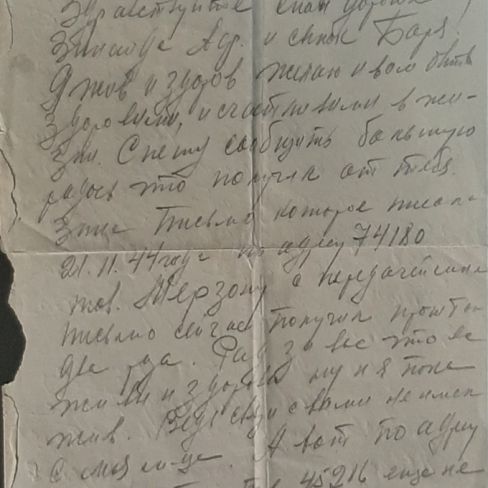 Здравствуйте мои дорогие
Зиночка и сынок Боря.
Я жив и здоров желаю и вам быть
здоровыми, и счастливыми в жи-
зни. Спешу сообщить большую
радось что получил от тебя
Зина Письмо которое писала
21.11.44 года на адресу 74180
тов. Мерзону
письмо сейчас получил
два года. Рад за вас что все
живы и здоровы ну и я пока
жив. Ведь с вами не имел
А вот по адресу
45216 еще не